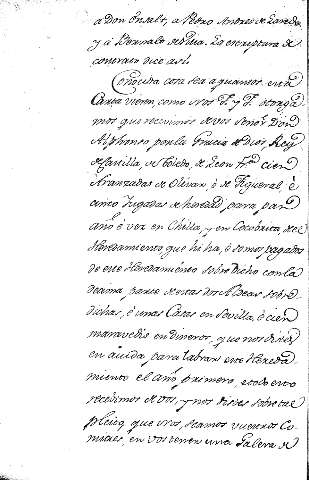 a Don Inselt, a Pedro Andres de Laredo
y a Bernalo de la escreptura de
contrato dice asi.
Conocida cosa sea a quantos esta
Carta vieren, como Nos F. y F. otorga
mos que recevimos de vos Señor Don
Alphonso por la Gracia de Dios, Rey
de Castilla, de Toledo, de Leon &c. cien
Aranzadas de Olivar, è de Figueral, è
cinco Yugadas de heredad para pan
año è vez en Chilla, y en Cocobrita, del
Heredamiento que hi ha, è somos pagados
de este Heredamiento sobredicho con la
decima parte de estas dos Aldeas sobre
dichas, è unas Casas en Sevilla, è cien
maravedis en dineros, que nos disteis
en aiuda, para labrar este Hereda
miento el año primero, è todo esto
recebimos de vos, y nos disteis sobre tal
pleito, que Nos seamos vuestros Co
mitres, en vos tener una Galera de